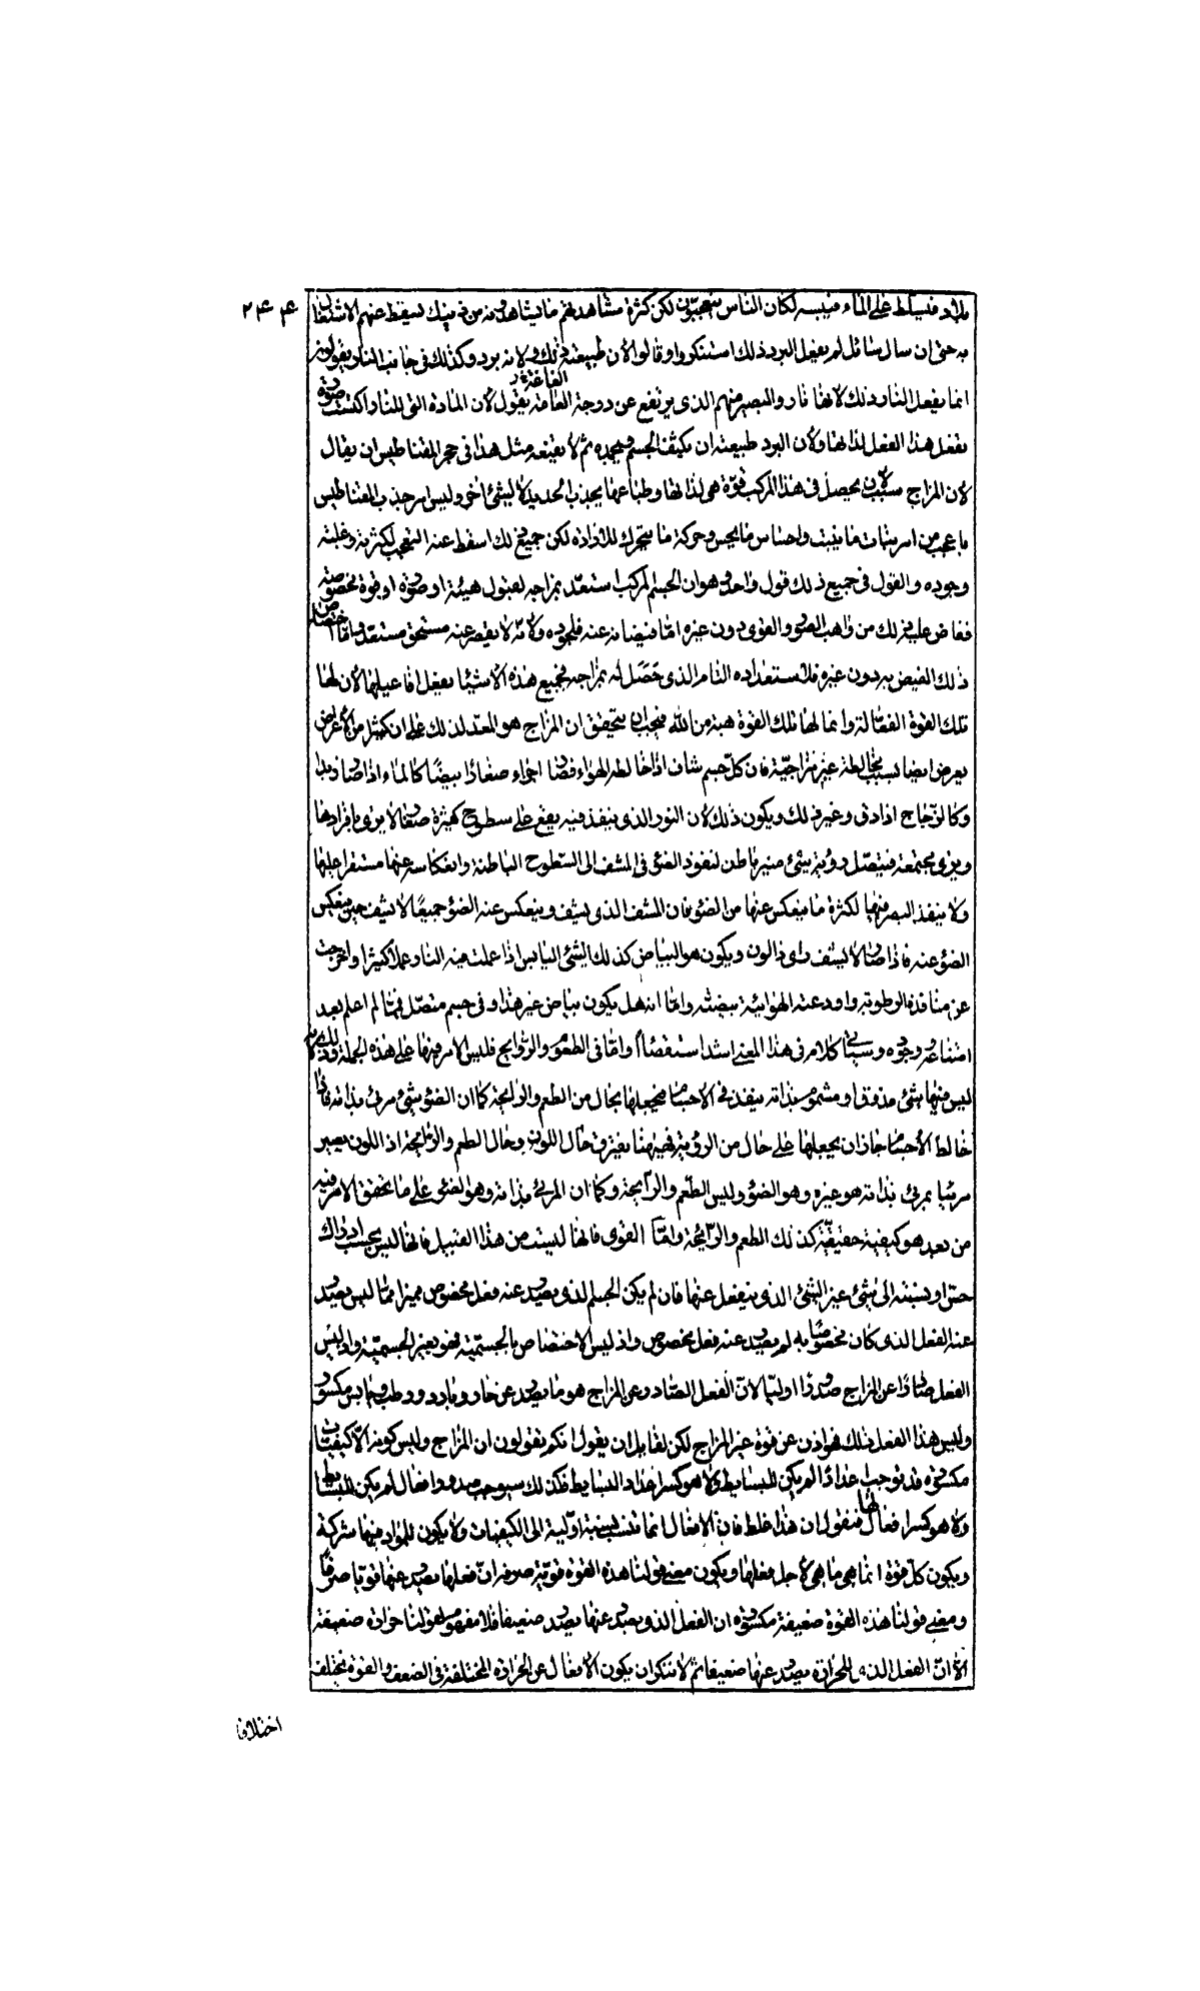 ۲۴۴
بلاد فيسلط على الماء فييبسه لكان الناس يتعجبون لكن كثرة مشاهدتهم ما يشاهدونه من ذلك يسقط عنهم الاشتغال
به حتى ان سال سائل لم يفعل البرد ذلك استنكروا وقالوا لان طبيعته ذلك ولانه برد وكذلك في جانب النار يقولون
انما يفعل النار ذلك لانها نار والبصير منهم الذي يرتفع عن درجة العامة يقول لأن المادة التي للنار اكتست صورة
الفاغة
يفعل هذا الفعل لذاتها ولأن البرد طبيعته ان يكثف الجسم ويجمده ثم لا يقنعه مثل هذا في حجر المغناطيس ان يقال
لان المزاج سبب لان يحصل في هذا المركب قوة هي لذاتها وطباعها يجذب الحديد لا لشئ اخر وليس امر جذب المغناطيس
باعجب من امر نبات ما ينبت واحساس ما يحس وحركة ما يتحرك للارادة لكن جميع ذلك اسقط عنه التعجب لكثرته وغلبة
وجوده والقول في جميع ذلك قول واحد وهو ان الجسم المركب استعد بمزاجه لقبول هيئة او صورة او قوة مخصوصة
ففاض عليه ذلك من واهب الصور والقوى دون غيره اما فيضانه عنه فلجوده ولانه لا يقصر عنه مستحق مستعد واما اختصاص
ذلك الفيض به دون غيره فلاستعداده التام الذي حصل له بمزاجه فجميع هذه الاشياء يفعل افاعيلها لأن لها
تلك القوة الفعالة وانما لها تلك القوة هبة من الله فيجب ان يتحقق ان المزاج هو المعد لذلك على ان كثيرا من الأعراض
يعرض ايضا بسبب مخالطة غير مزاجية فان كل جسم شاف اذا خالطه الهواء فصار اجزاء صغارا ابيض كالماء اذا صار زبدا
وكالزجاج اذا دق وغير ذلك ويكون ذلك لان النور الذي ينفذ فيه يقع على سطوح كثيرة صغار لا يرى بافرادها
ويرى مجتمعة فيتصل رؤية شئ منير باطن لنفوذ الضوئ في المشف الى السطوح الباطنة وانعكاسه عنها مستقرا عليها
ولا ينفذ البصر فيها لكثرة ما ينعكس عنها من الضوء فان المشف الذي يشف وينعكس عنه الضوء جميعا لا يشف حين ينعكس
الضوء عنه فاذا صار لا يشف رأى ذا لون ويكون هو البياض كذلك الشئ اليابس اذا عملت فيه النار عملا كثيرا واخرجت
عن منافذه الرطوبة واودعته الهوائية بيضته واما انه هل يكون بياض غير هذا وفي جسم متصل فمما لم اعلم بعد
امتناعه ووجوده وسياتي كلام في هذا المعنى اشد استقصاءا واما في الطعوم والروائح فليس الامر فيها على هذه الجملة وذلك لانه
ليس منها شئ مذوق او مشموم بذاته ينفذ في الاجسام فيجعلها بحال من الطعم والرائحة كما ان الضوء شئ مرئ بذاته فاذا
خالط الأجسام جاز ان يجعلها على حال من الرؤية فههنا يفترق حال اللون وحال الطعم والرائحة اذ اللون يصير
مرئيا بمرئ بذاته هو غيره وهو الضوء وليس الطعم والرائحة وكما ان المرئ بذاته وهو الضوئ على ما يحقق الامر فيه
من بعد هو كيفية حقيقية كذلك الطعم والرائحة واما القوى فانها ليست من هذا القبيل فانها ليس بحسب ادراك
حس او نسبته الى شئ غير الشئ الذي ينفعل عنها فان لم يكن الجسم الذي يصدر عنه فعل مخصوص مميزا مما ليس يصدر
عنه الفعل الذي كان مخصوصا به لم يصدر عنه فعل مخصوص واذ ليس الاختصاص بالجسمية فهو بغير الجسمية واذ ليس
الفعل صادرا عن المزاج صدورا اوليا لان الفعل الصادر عن المزاج هو ما يصدر عن حار وبارد ورطب ويابس مكسور
وليس هذا الفعل ذلك فهو اذن عن قوة غير المزاج لكن لقايل ان يقول انكم تقولون ان المزاج وليس كونه الا كيفيات
مكسورة قد توجب اعدادا لم يكن للبسايط ولا هو كسر اعداد البسايط فكذلك سيوجب صدور افعال لم يكن للبسايط
ولا هو كسر افعالها فنقول ان هذا غلط فان الافعال انما تنسب نسبة اولية الى الكيفيات ولا يكون للمواد فيها شركة
ويكون كل قوة انما هي ما هي لأجل فعلها ويكون معنى قولنا هذه القوة قوية صرفة ان فعلها يصدر عنها قويا صرفا
ومعنى قولنا هذه القوة ضعيفة مكسورة ان الفعل الذي يصدر عنها يصدر ضعيفا فلا مفهوم لقولنا حرارة ضعيفة
الا ان الفعل الذي للحرارة يصدر عنها ضعيفا ثم لا ننكر ان يكون الافعال عن الحرارة المختلفة في الضعف والقوة مختلفة
اختلافا